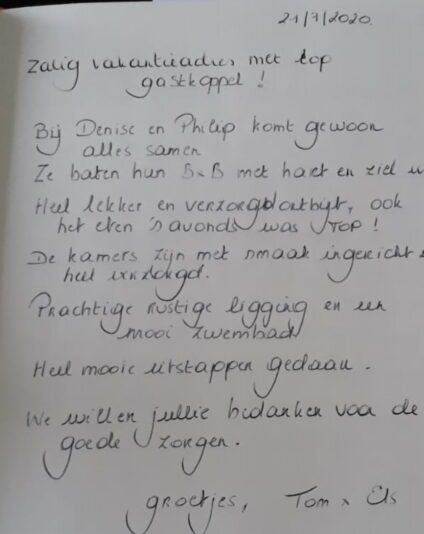 21/7/2020
Zalig vakantieadres met top
gastkoppel !
Bij Denise en Philip komt gewoon
alles samen
Ze baten hun B&B met hart en ziel u
Heel lekker en verzorgd ontbijt, ook
het eten 's avonds was TOP !
De kamers zijn met smaak ingericht &
heel verzorgd.
Prachtige rustige ligging en een
mooi zwembad
Heel mooie uitstappen gedaan.
We willen jullie bedanken voor de
goede zorgen.
groetjes, Tom & Els